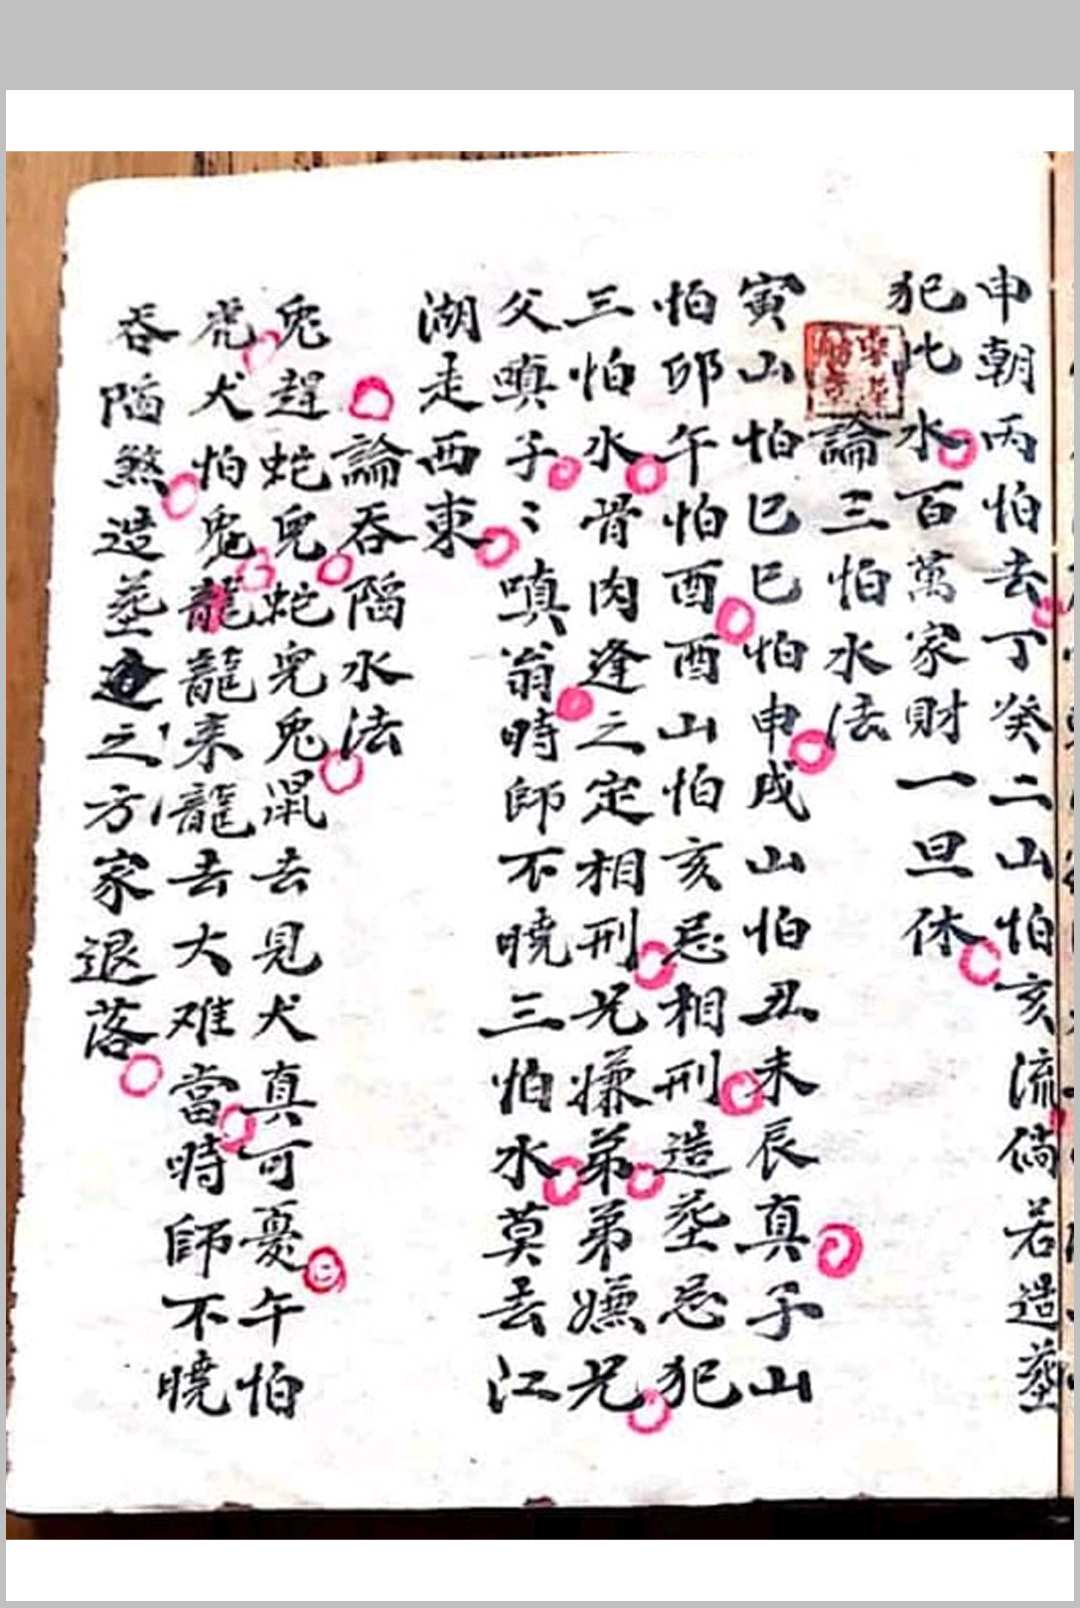 申朝丙怕去丁癸二山怕亥流倘若造塟
犯此水百萬家財一旦休
論三怕水法
寅山怕巳巳怕申戌山怕丑未辰真子山
怕卯午怕酉酉山怕亥忌相刑造塟忌犯
三怕水骨肉逢之定相刑兄嫌弟弟嫌兄
父嗔子〻嗔翁時師不曉三怕水莫去江
湖走西東
論吞陷水法
兎趕蛇兒蛇兒兎鼠去見犬真可憂午怕
虎犬怕兎龍龍来龍去大难當時師不曉
吞陷煞造塟之方家退落